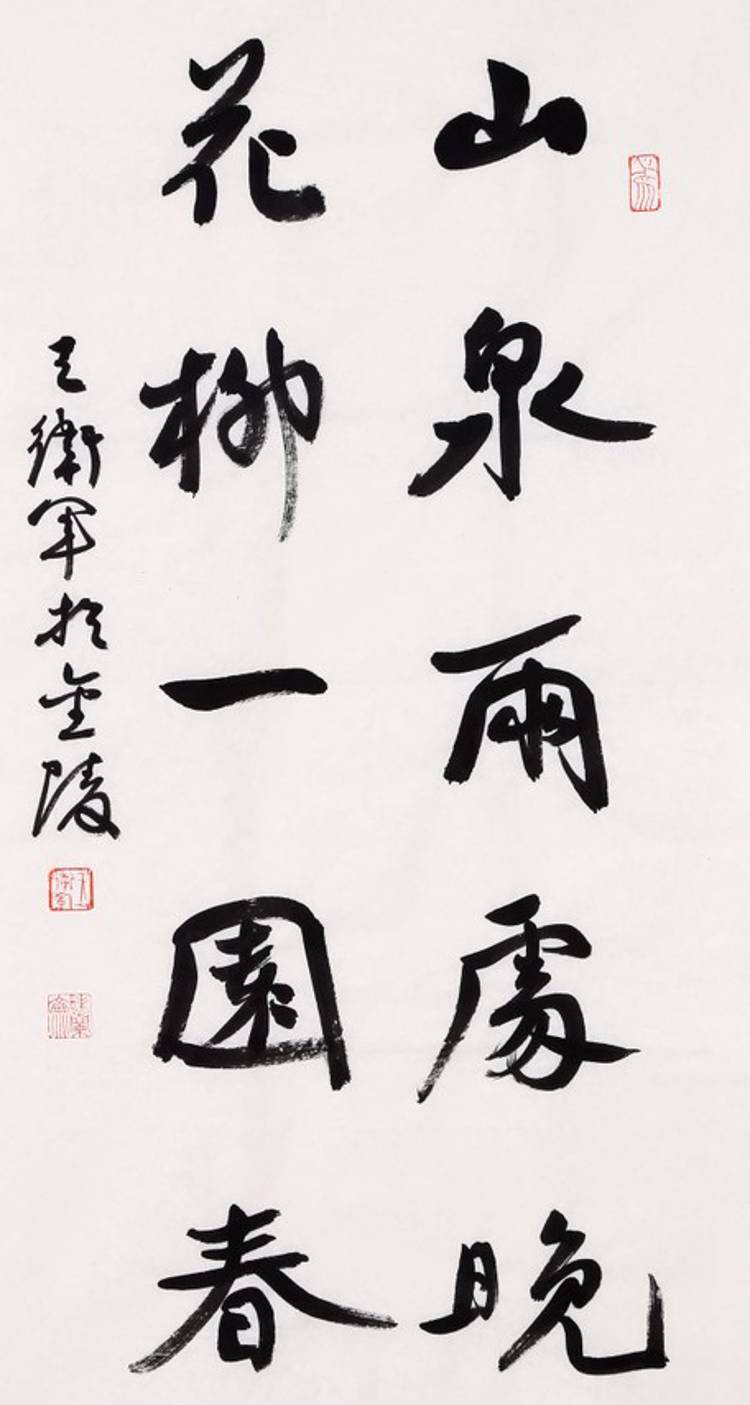 山泉雨處晚
花柳一園春
王衛軍於金陵